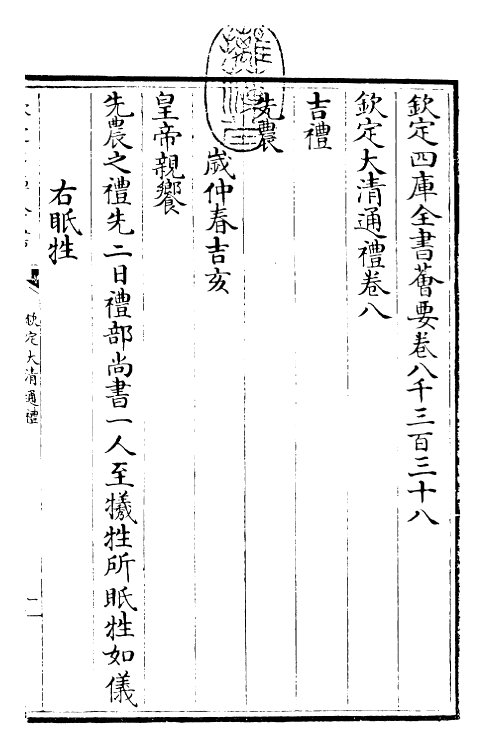 欽定四庫全書薈要卷八千三百三十八
欽定大清通禮卷八
吉禮
先農
歲仲春吉亥
皇帝親饗
先農之禮先二日禮部尚書一人至犧牲所眡牲如儀
右眡牲
欽定大清通禮